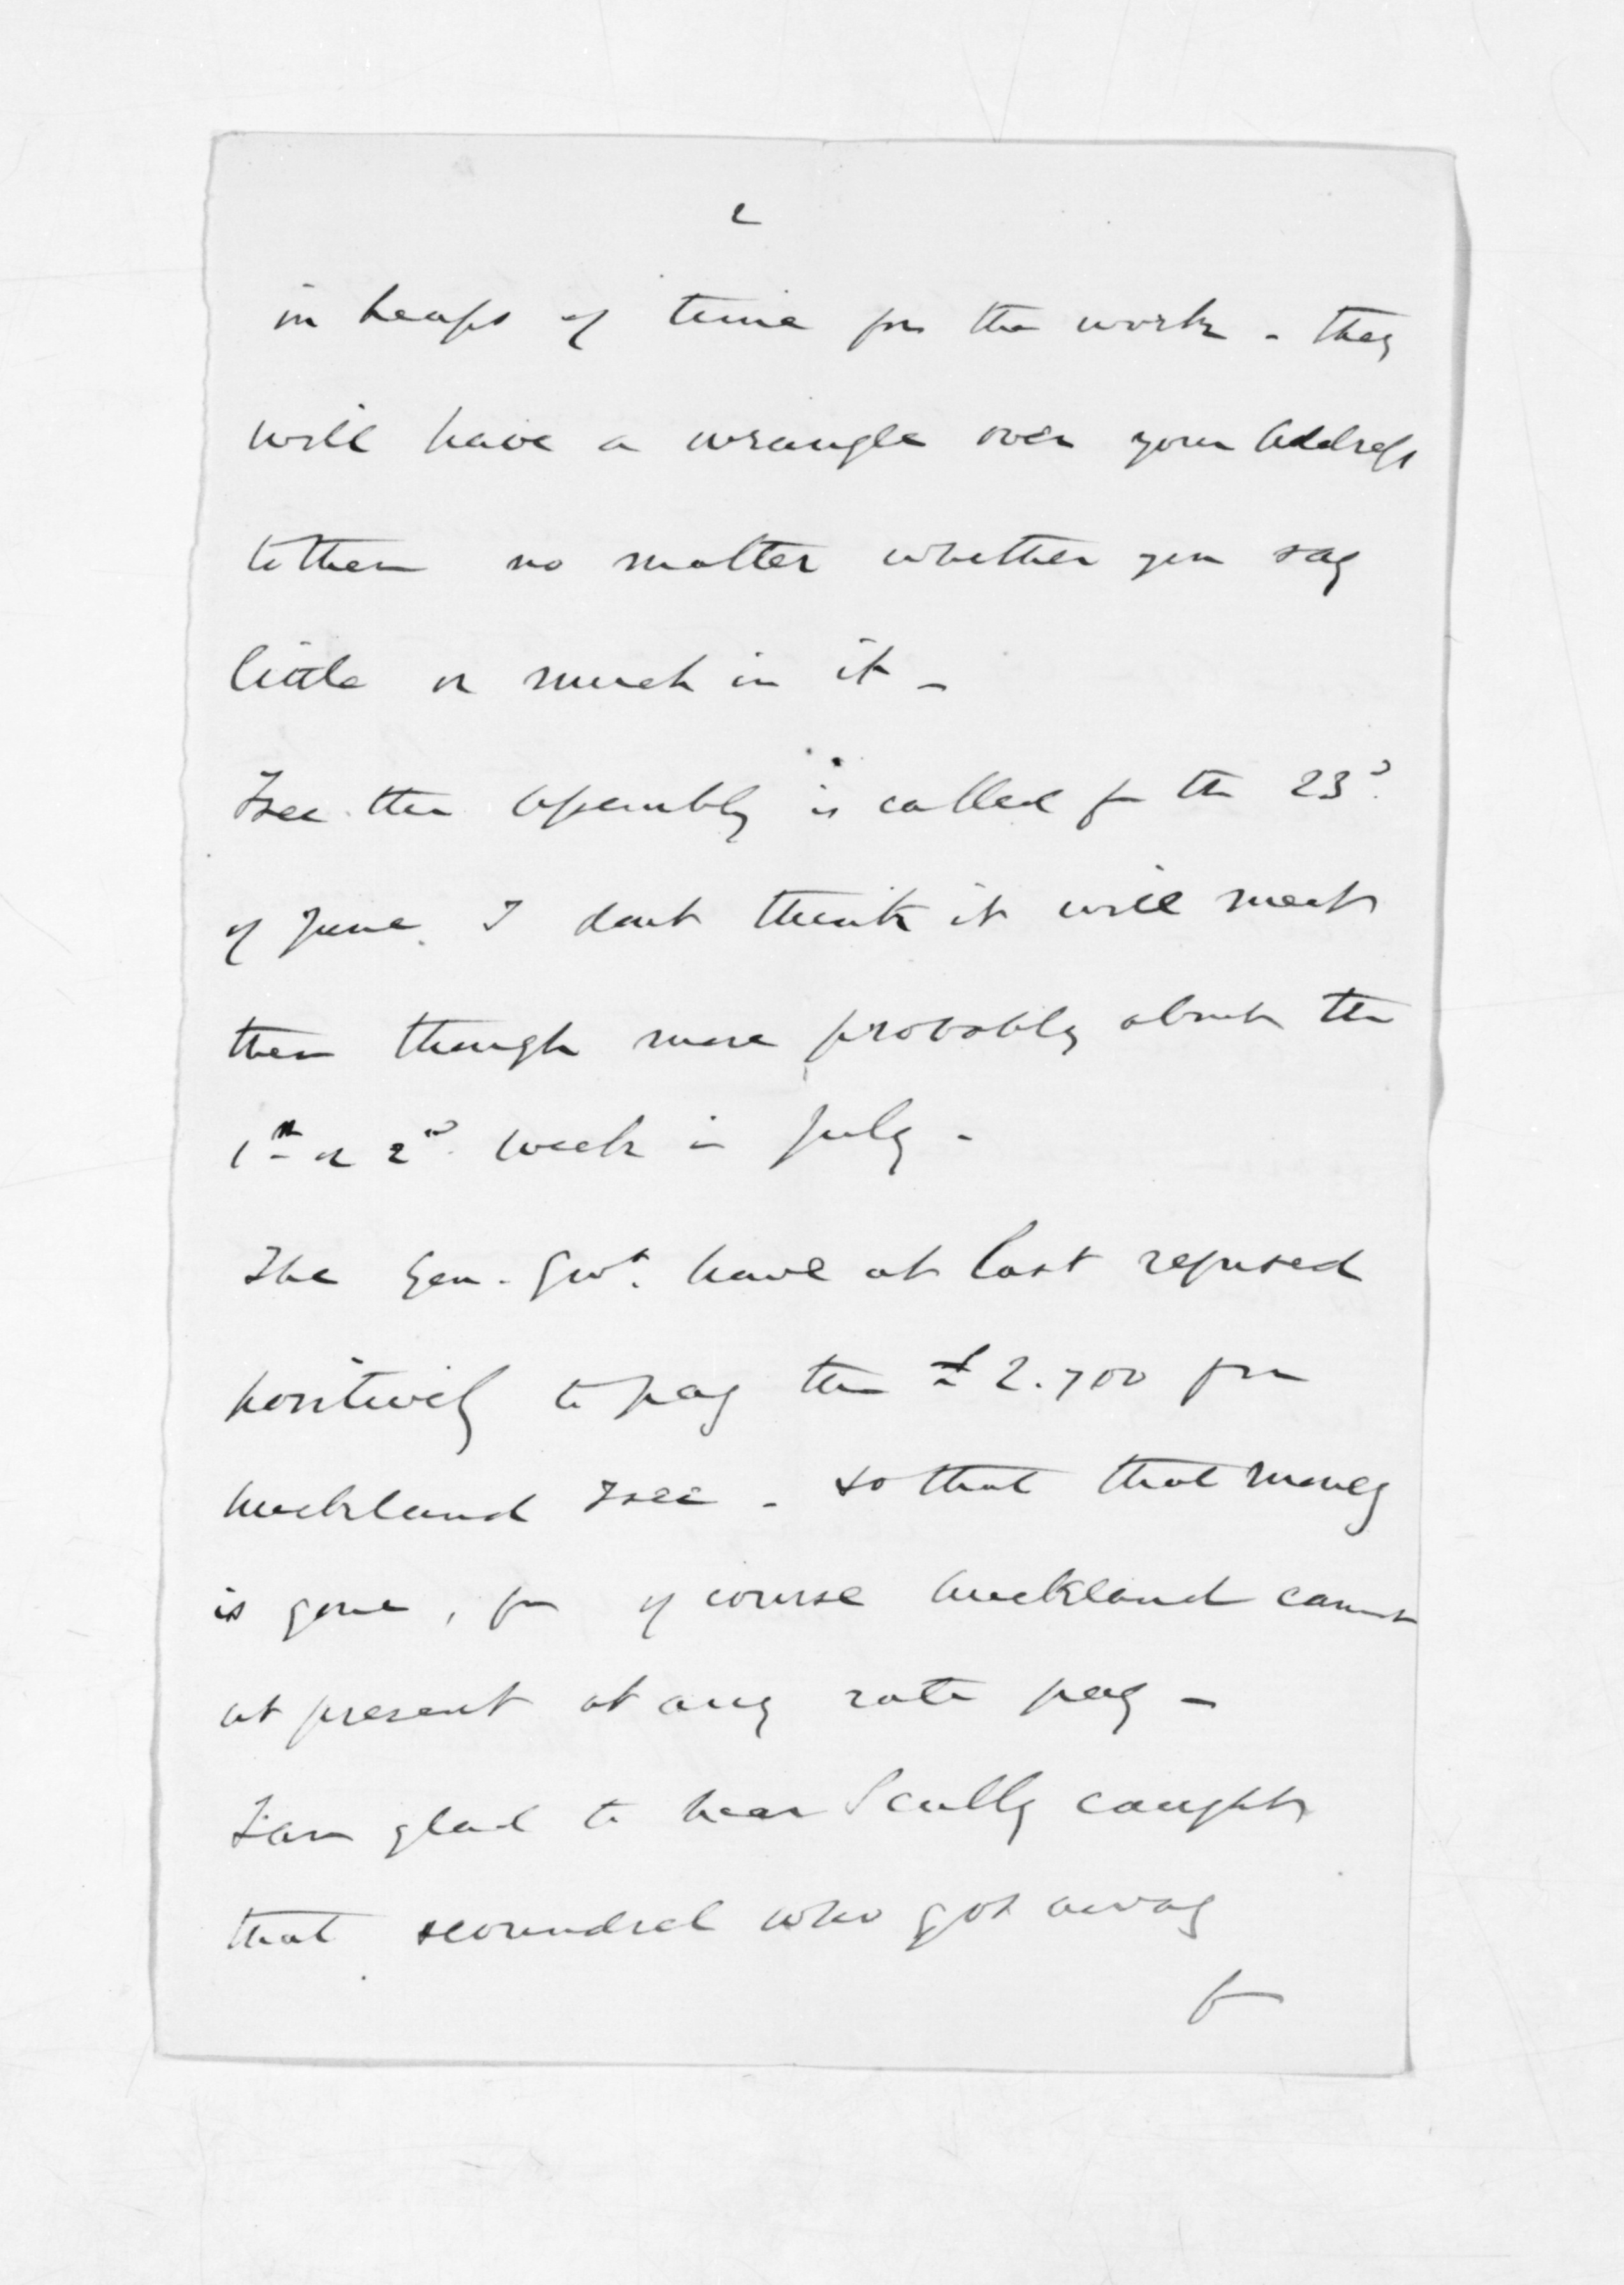 2
in heaps of time for the work - they
will have a wrangle over your Address
to them no matter whether you say
little or much in it -
I see the Assembly is called for the 23d.
of June. I dont think it will meet
then though more probably about the
1st or 2nd. week in July -
The Gen. Govt. have at last refused
positively to pay the £2.700 for
Auckland I see - so that that money
is gone, for of course Auckland cannot
at present at any rate pay -
I am glad to hear Scully caught
that scoundrel who got away
fr